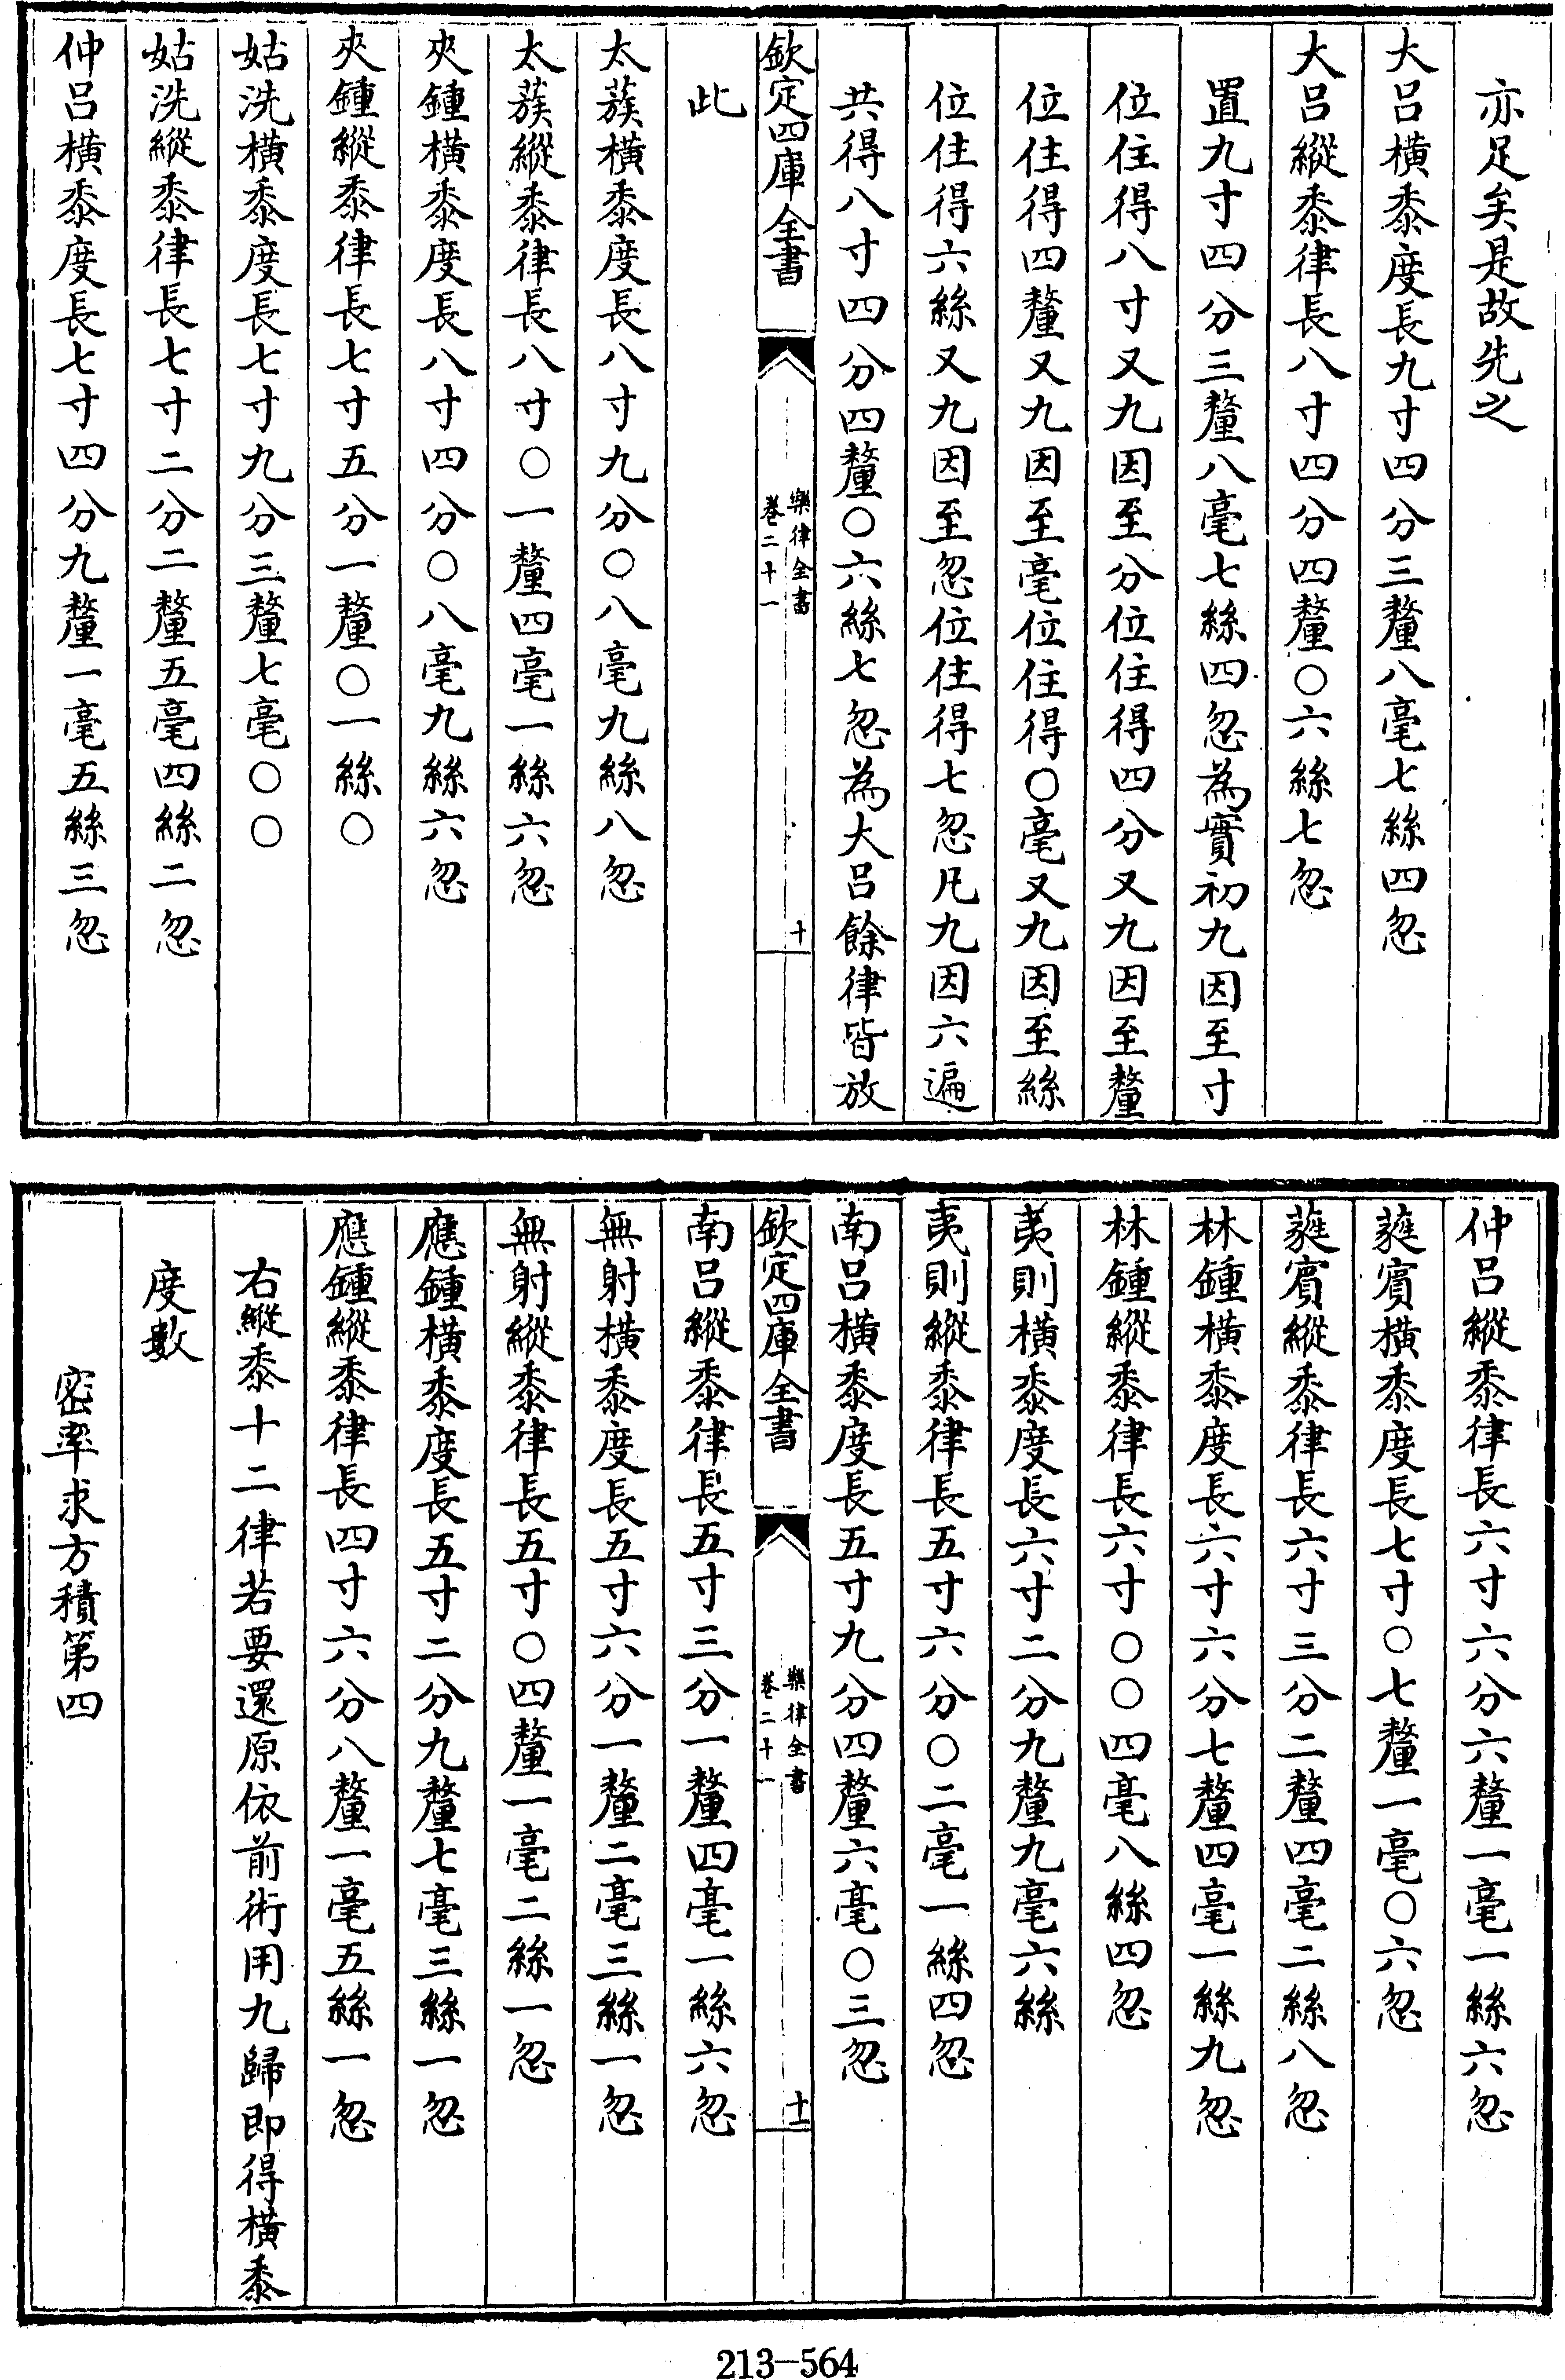 亦足矣是故先之
大呂橫黍度長九寸四分三釐八毫七絲四忽
大呂縱黍律長八寸四分四釐〇六絲七忽
置九寸四分三釐八毫七絲四忽為實初九因至寸
位住得八寸又九因至分位住得四分又九因至釐
位住得四釐又九因至毫位住得〇毫又九因至絲
位住得六絲又九因至忽位住得七忽凡九因六遍
共得八寸四分四釐〇六絲七忽為大呂餘律皆放
欽定四庫全書
樂律全書
卷二十一
十
此
太蔟橫黍度長八寸九分〇八毫九絲八忽
太蔟縱黍律長八寸〇一釐四毫一絲六忽
夾鍾橫黍度長八寸四分〇八毫九絲六忽
夾鍾縱黍律長七寸五分一釐〇一絲〇
姑洗橫黍度長七寸九分三釐七毫〇〇
姑洗縱黍律長七寸二分二釐五毫四絲二忽
仲呂橫黍度長七寸四分九釐一毫五絲三忽
仲呂縱黍律長六寸六分六釐一毫一絲六忽
蕤賓橫黍度長七寸〇七釐一毫〇六忽
蕤賓縱黍律長六寸三分二釐四毫二絲八忽
林鍾橫黍度長六寸六分七釐四毫一絲九忽
林鍾縱黍律長六寸〇〇四毫八絲四忽
夷則橫黍度長六寸二分九釐九毫六絲
夷則縱黍律長五寸六分〇二毫一絲四忽
南呂橫黍度長五寸九分四釐六毫〇三忽
欽定四庫全書
樂律全書
卷二十一
十一
南呂縱黍律長五寸三分一釐四毫一絲六忽
無射橫黍度長五寸六分一釐二毫三絲一忽
無射縱黍律長五寸〇四釐一毫二絲一忽
應鍾橫黍度長五寸二分九釐七毫三絲一忽
應鍾縱黍律長四寸六分八釐一毫五絲一忽
右縱黍十二律若要還原依前術用九歸即得橫黍
度數
密率求方積第四
213-564